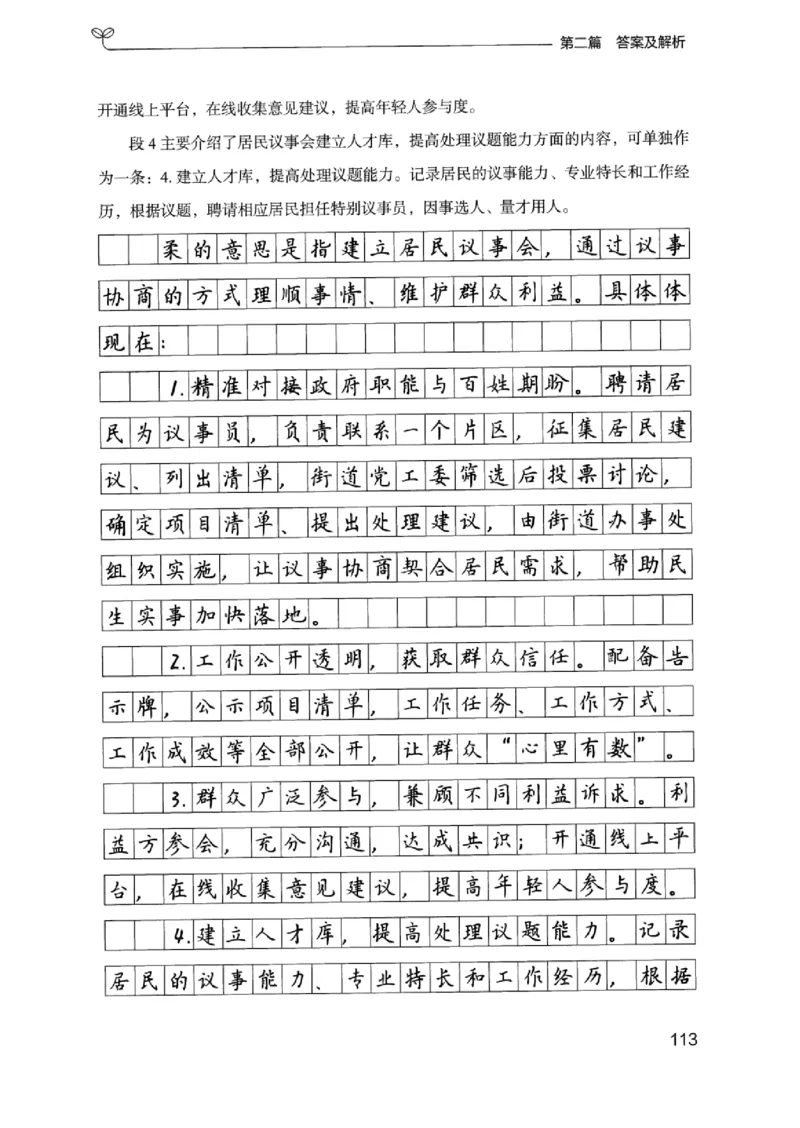 第二篇 答案及解析
开通线上平台，在线收集意见建议，提高年轻人参与度。
段 4 主要介绍了居民议事会建立人才库，提高处理议题能力方面的内容，可单独作
为一条：4. 建立人才库，提高处理议题能力。记录居民的议事能力、专业特长和工作经
历，根据议题，聘请相应居民担任特别议事员，因事选人、量才用人。
柔的意思是指建立居民议事会，通过议事
协商的方式理顺事情、维护群众利益。具体体
现在：
1.精准对接政府职能与百姓期盼。聘请居
民为议事员，负责联系一个片区，征集居民建
议、列出清单，街道党工委筛选后投票讨论，
确定项目清单、提出处理建议，由街道办事处
组织实施，让议事协商契合居民需求，帮助民
生实事加快落地。
2.工作公开透明，获取群众信任。配备告
示牌，公示项目清单，工作任务、工作方式、
工作成效等全部公开，让群众“心里有数”。
3.群众广泛参与，兼顾不同利益诉求。利
益方参会，充分沟通，达成共识；开通线上平
台，在线收集意见建议，提高年轻人参与度。
4.建立人才库，提高处理议题能力。记录
居民的议事能力、专业特长和工作经历，根据
113